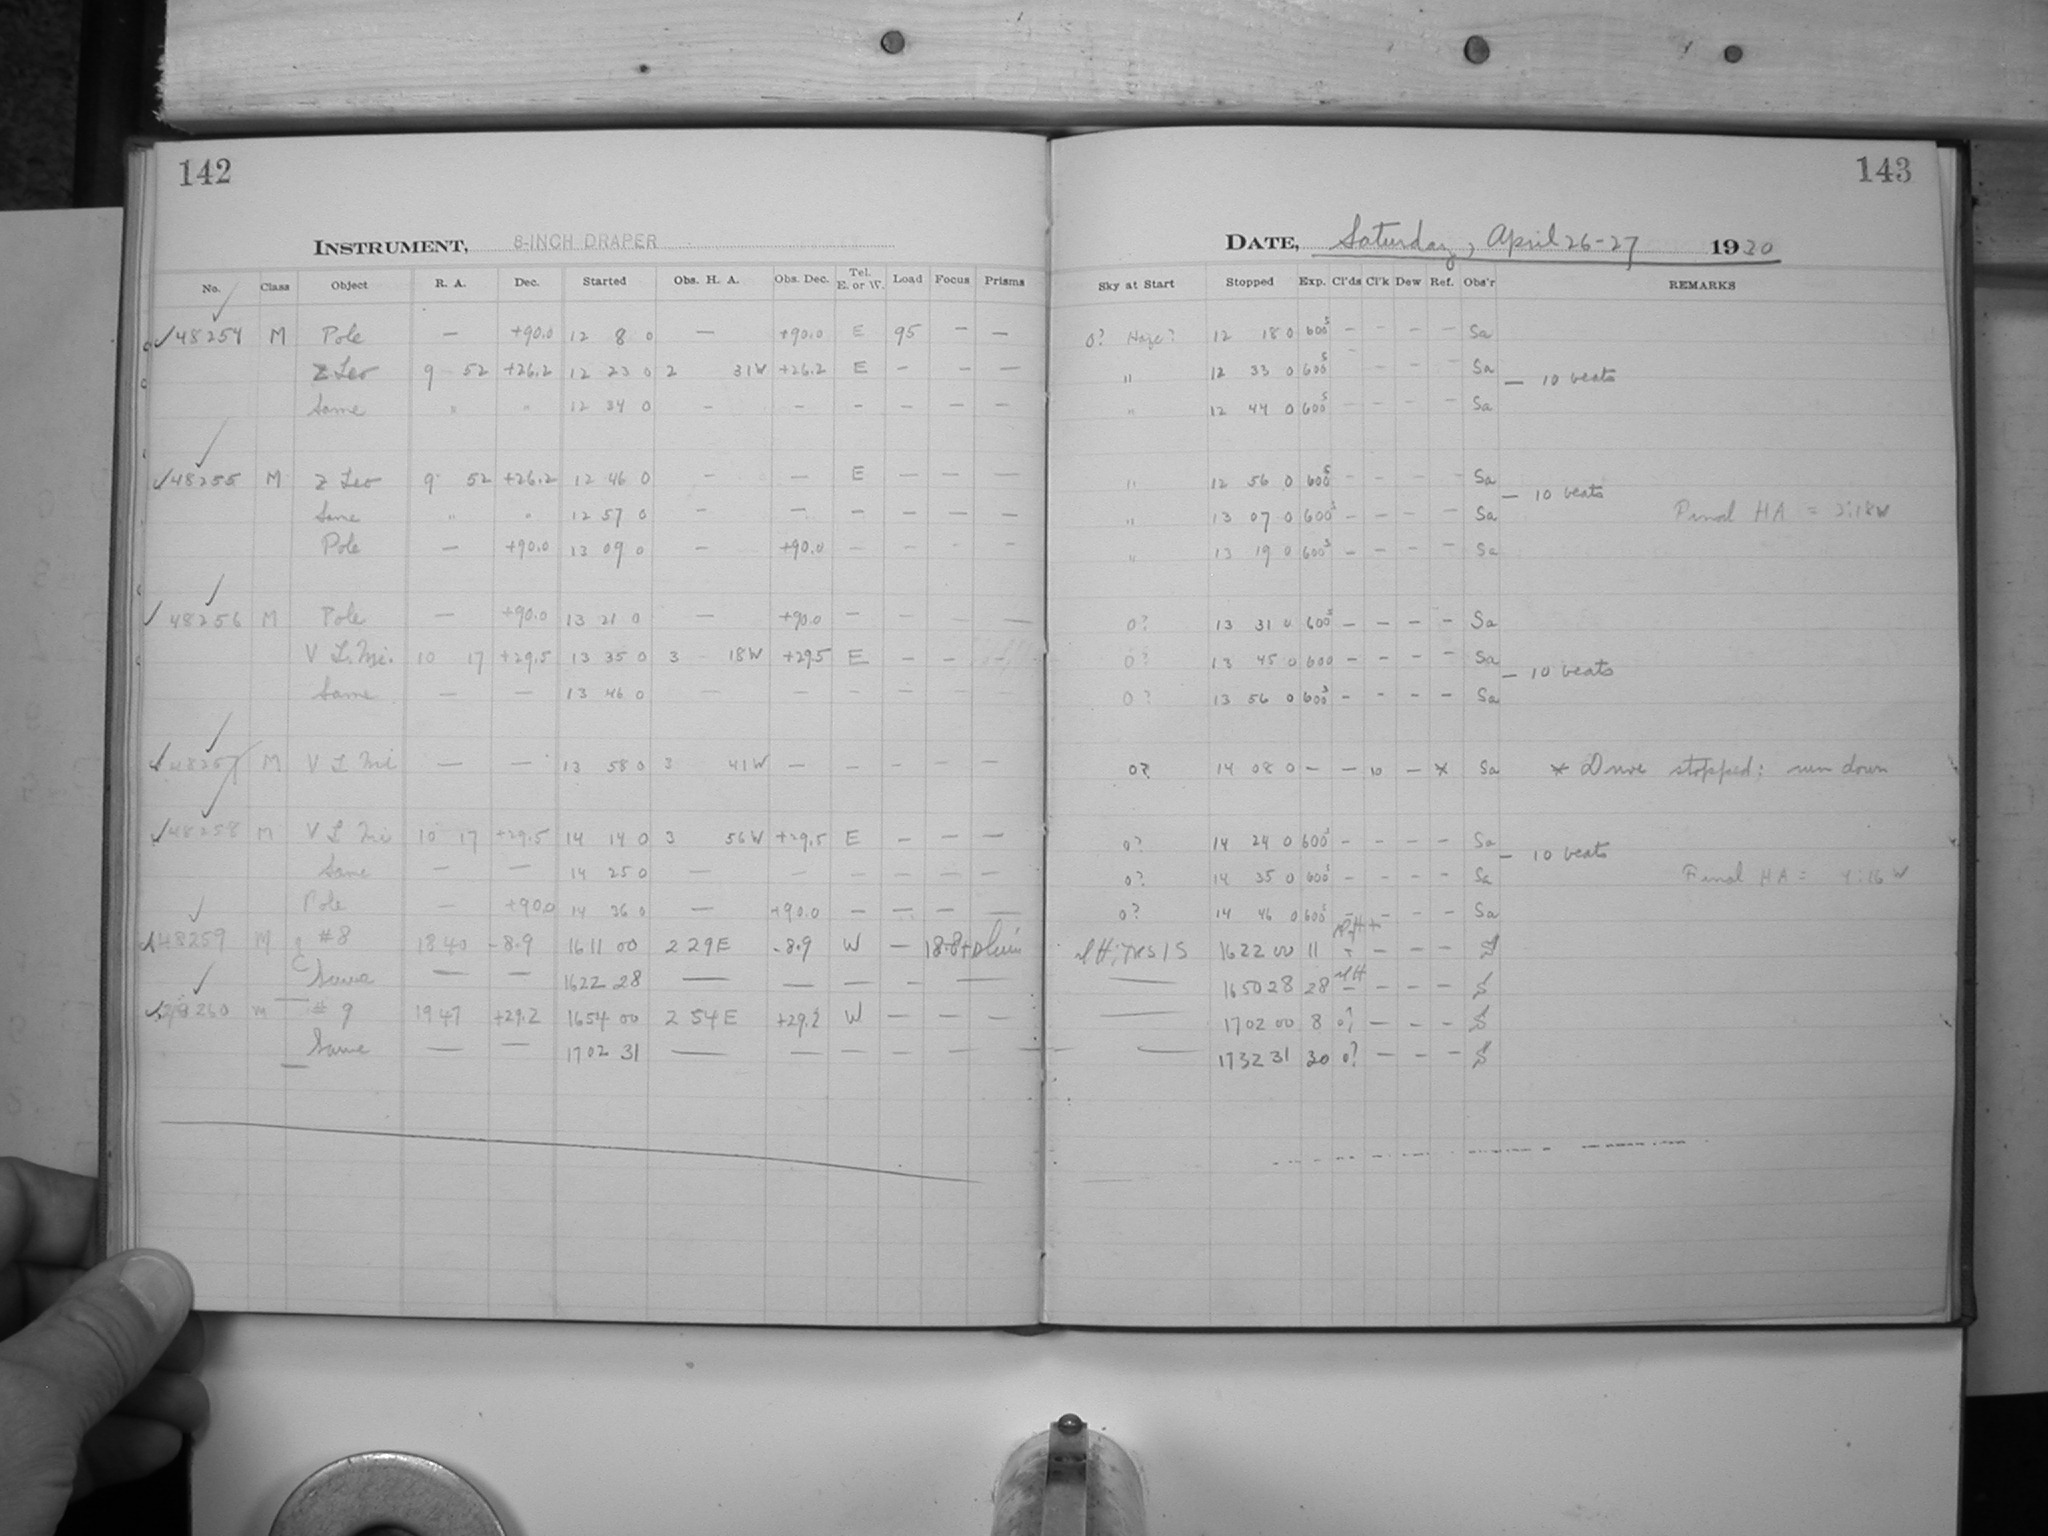 142
143
INSTRUMENT, 8-INCH DRAPER
DATE, Saturday, April 26-27 1930
No. Class Object R. A. Dec. Started Obs. H. A. Obs. Dec. Tel. E. or W. Load Focus Prisms Sky at Start Stopped Exp. Cl'ds Cl'k Dew Ref. Obs'r REMARKS
✓48254 M Pole — +90.0 12 8 0 — +90.0 E 95 — — 0? Haze? 12 18 0 600s — — — — Sa
Z Leo 9 52 +26.2 12 23 0 2 31W +26.2 E — — — " 12 33 0 600s — — — Sa
— 10 beats
Same " " 12 34 0 — — — — — — " 12 44 0 600s — — — — Sa
✓48255 M Z Leo 9 52 +26.2 12 46 0 — — E — — — " 12 56 0 600s — — — — Sa
— 10 beats
Same " " 12 57 0 — — — — — — " 13 07 0 600s — — — — Sa Final HA = 2:18W
Pole — +90.0 13 09 0 — +90.0 — — — — " 13 19 0 600s — — — — Sa
✓48256 M Pole — +90.0 13 21 0 — +90.0 — — — — 0? 13 31 0 600s — — — — Sa
V L. Mi. 10 17 +29.5 13 35 0 3 18W +29.5 E — — — 0? 13 45 0 600 — — — — Sa
— 10 beats
Same — — 13 46 0 — — — — — — 0? 13 56 0 600s — — — — Sa
✓48257 M V L Mi — — 13 58 0 3 41W — — — — — 0? 14 08 0 — — 10 — * Sa * Drive stopped; run down
✓48258 M V L Mi 10 17 +29.5 14 14 0 3 56W +29.5 E — — — 0? 14 24 0 600s — — — — Sa
— 10 beats
Same — — 14 25 0 — — — — — — 0? 14 35 0 600s — — — — Sa Final HA = 4:16W
Pole — +90.0 14 36 0 — +90.0 — — — — 0? 14 46 0 600s — — — — Sa
48259 M #8 18 40 -8.9 16 11 00 2 29 E -8.9 W — 18.8 16 22 00 11 — — — S
Same — — 16 22 28 — — — — — — 16 50 28 28 — — — — S
48260 M #9 19 47 +29.2 16 54 00 2 54 E +29.2 W — — — — 17 02 00 8 0? — — — S
Same — — 17 02 31 — — — — — — — 17 32 31 30 0? — — — S